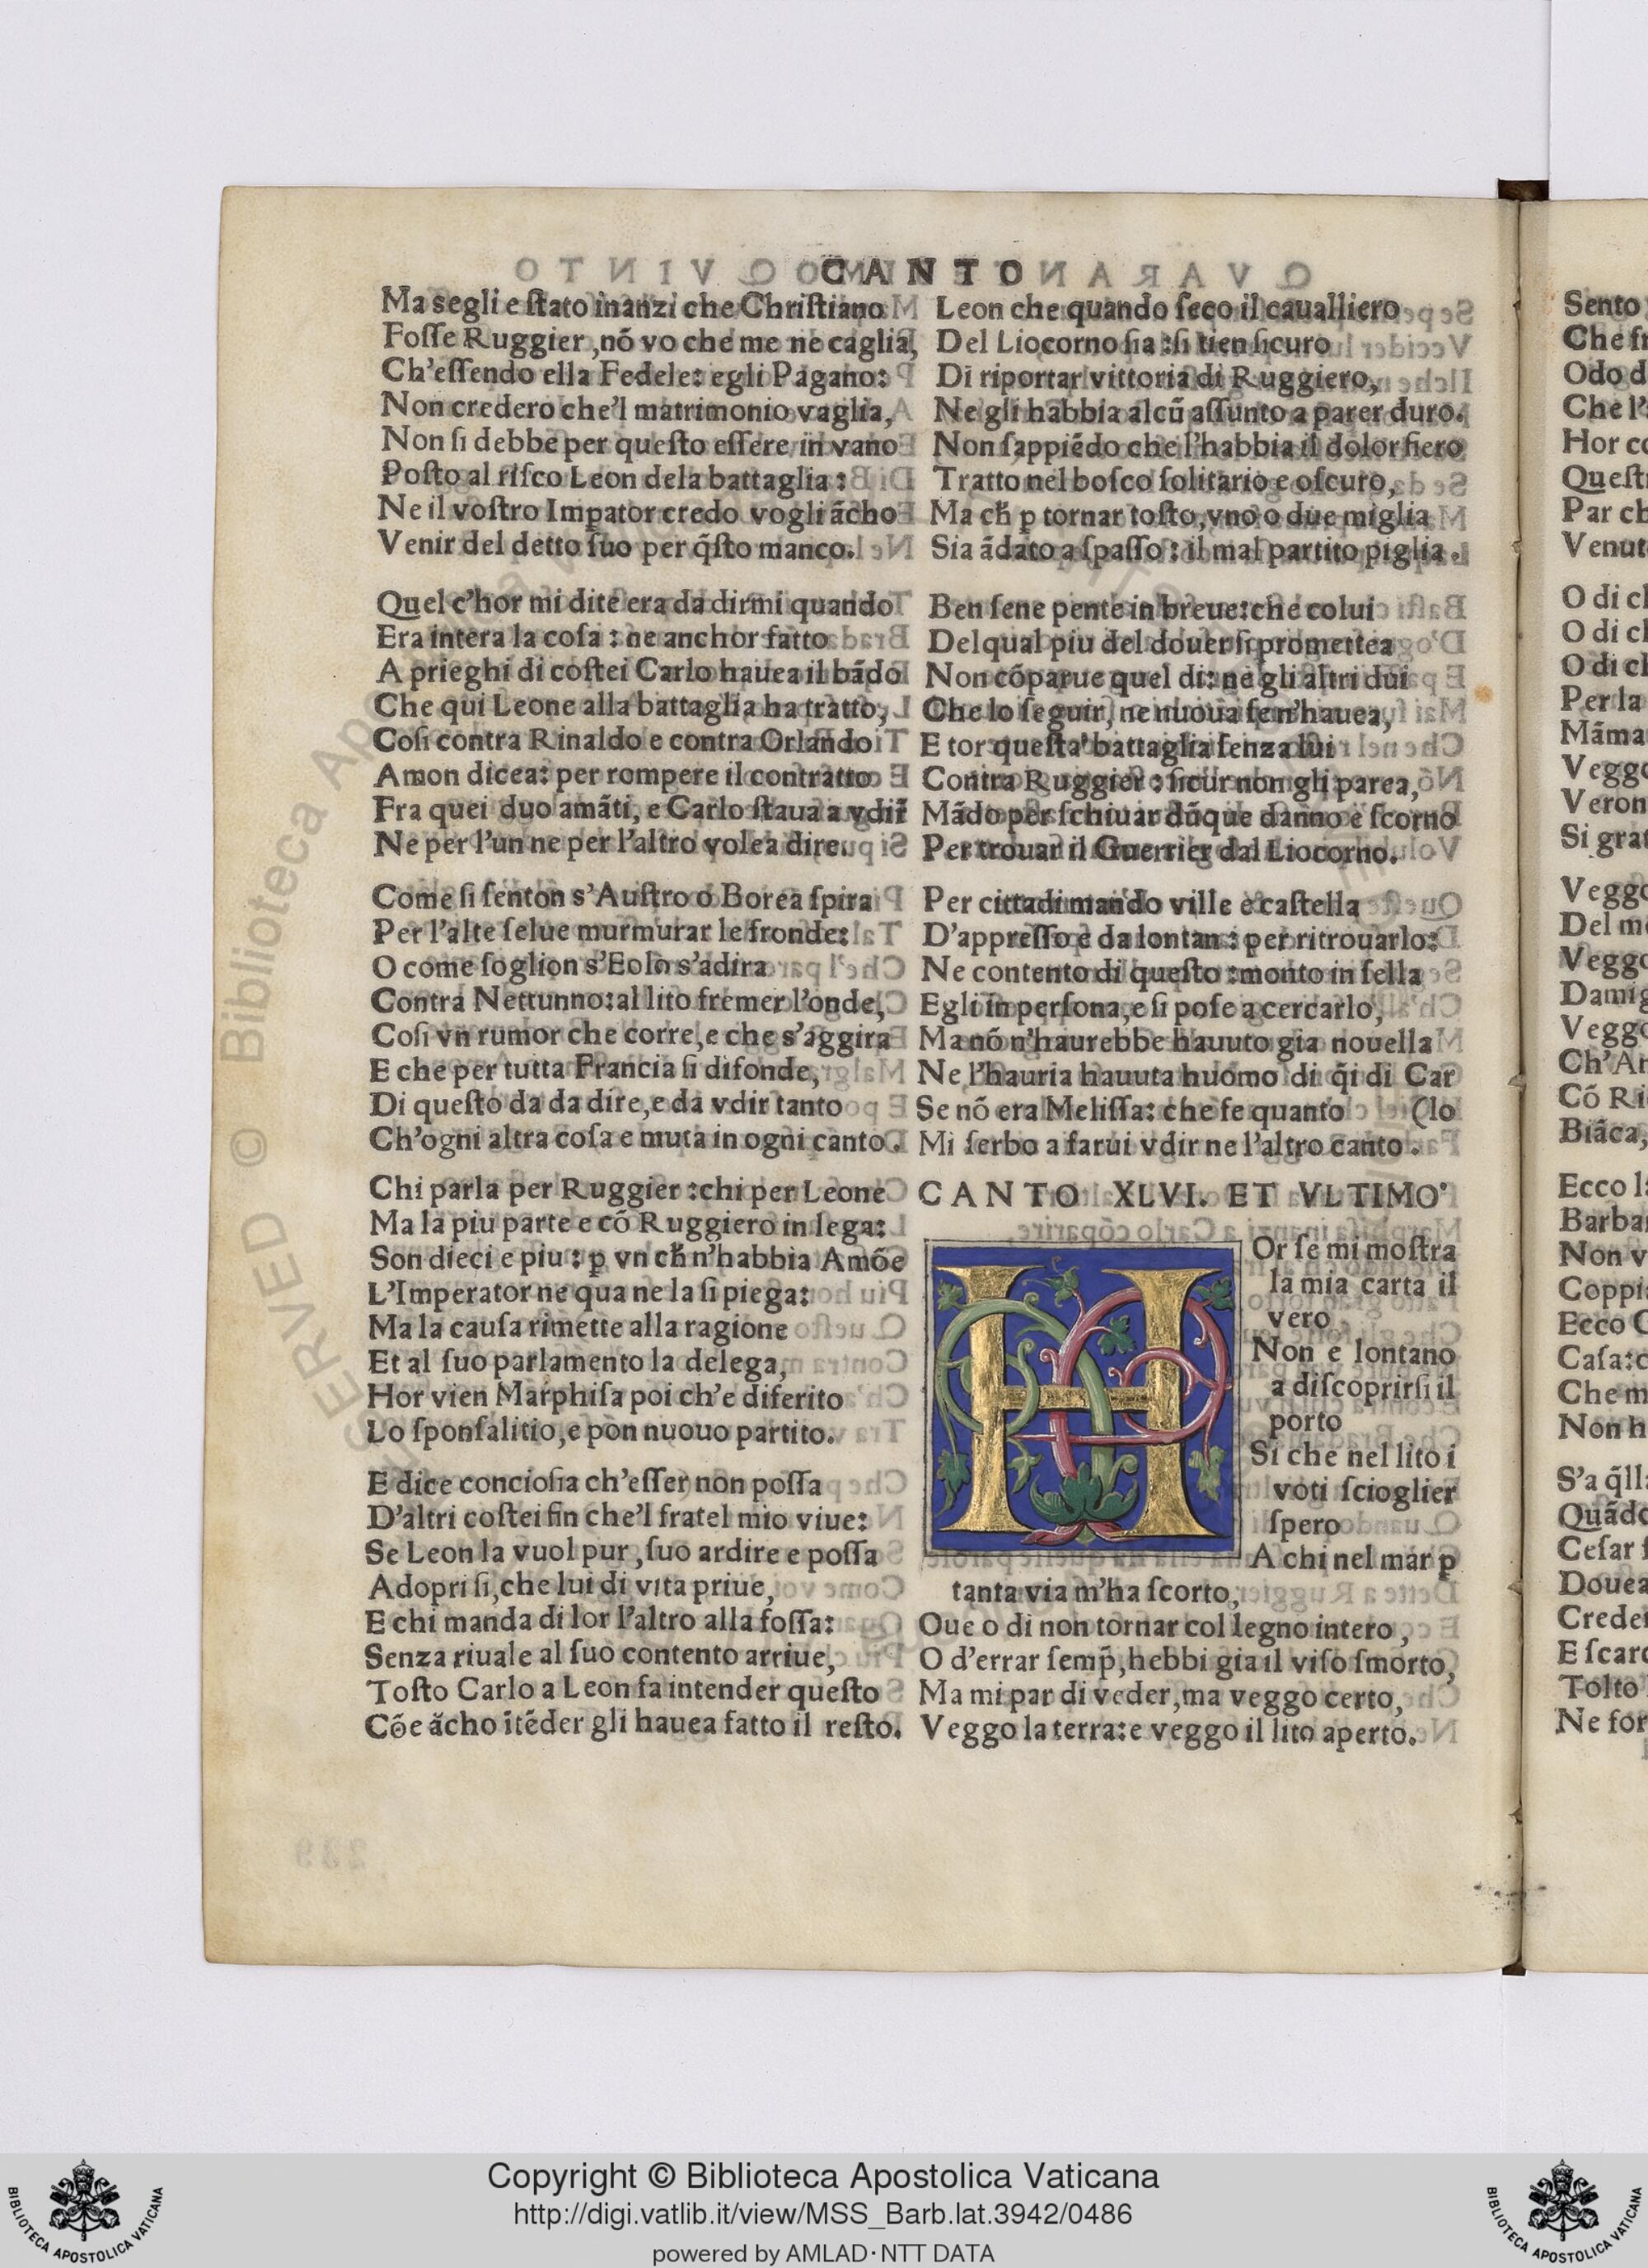 CANTO
Ma segli e ſtato inanzi che Chriſtiano
Foſſe Ruggier, nõ vo che me ne caglia,
Ch'eſſendo ella Fedele: egli Pagano:
Non credero che'l matrimonio vaglia,
Non ſi debbe per queſto eſſere in vano
Poſto al riſco Leon dela battaglia:
Ne il voſtro Impator credo vogli ãcho
Venir del detto ſuo per q̃ſto manco.
Quel c'hor mi dite era da dirmi quando
Era intera la coſa: ne anchor fatto
A prieghi di coſtei Carlo hauea il bãdo
Che qui Leone alla battaglia ha tratto,
Coſi contra Rinaldo e contra Orlando
Amon dicea: per rompere il contratto
Fra quei duo amãti, e Carlo ſtaua a vdir̃
Ne per l'un ne per l'altro volea dire.
Come ſi ſenton s'Auſtro o Borea ſpira
Per l'alte ſelue murmurar le fronde:
O come ſoglion s'Eolo s'adira
Contra Nettunno: al lito fremer l'onde,
Coſi vn rumor che corre, e che s'aggira
E che per tutta Francia ſi difonde,
Di queſto da da dire, e da vdir tanto
Ch'ogni altra coſa e muta in ogni canto.
Chi parla per Ruggier: chi per Leone
Ma la piu parte e cõ Ruggiero in lega:
Son dieci e piu: ꝑ vn ch̃ n'habbia Amõe
L'Imperator ne qua ne la ſi piega:
Ma la cauſa rimette alla ragione
Et al ſuo parlamento la delega,
Hor vien Marphiſa poi ch'e diferito
Lo ſponſalitio, e pon nuouo partito.
E dice concioſia ch'eſſer non poſſa
D'altri coſtei fin che'l fratel mio viue:
Se Leon la vuol pur, ſuo ardire e poſſa
Adopri ſi, che lui di vita priue,
E chi manda di lor l'altro alla foſſa:
Senza riuale al ſuo contento arriue,
Toſto Carlo a Leon fa intender queſto
Cõe ãcho ĩtẽder gli hauea fatto il reſto.
Leon che quando ſeco il caualliero
Del Liocorno ſia: ſi tien ſicuro
Di riportar vittoria di Ruggiero,
Ne gli habbia alcũ aſſunto a parer duro.
Non ſappiẽdo che l'habbia il dolor fiero
Tratto nel boſco ſolitario e oſcuro,
Ma ch̃ ꝑ tornar toſto, vno o due miglia
Sia ãdato a ſpaſſo: il mal partito piglia.
Ben ſene pente in breue: che colui
Del qual piu del douer ſi promettea
Non cõparue quel di: ne gli altri dui
Che lo ſeguir, ne nuoua ſe n'hauea,
E tor queſta battaglia ſenza lui
Contra Ruggier: ſicur non gli parea,
Mãdo per ſchiuar dũque danno e ſcorno
Per trouar il Guerrier dal Liocorno.
Per cittadi mando ville e caſtella
D'appreſſo e da lontan: per ritrouarlo:
Ne contento di queſto: monto in ſella
Egli in perſona, e ſi poſe a cercarlo,
Ma nõ n'haurebbe hauuto gia nouella
Ne l'hauria hauuta huomo di q̃i di Car
Se nõ era Meliſſa: che fe quanto (lo
Mi ſerbo a farui vdir ne l'altro canto.
CANTO XLVI. ET VLTIMO
HOr ſe mi moſtra
la mia carta il
vero
Non e lontano
a diſcoprirſi il
porto
Si che nel lito i
voti ſcioglier
ſpero
A chi nel mar ꝑ
tanta via m'ha ſcorto,
Oue o di non tornar col legno intero,
O d'errar ſemp̃, hebbi gia il viſo ſmorto,
Ma mi par di veder, ma veggo certo,
Veggo la terra: e veggo il lito aperto.
Copyright © Biblioteca Apostolica Vaticana
http://digi.vatlib.it/view/MSS_Barb.lat.3942/0486
powered by AMLAD·NTT DATA
BIBLIOTECA APOSTOLICA VATICANA
BIBLIOTECA APOSTOLICA VATICANA